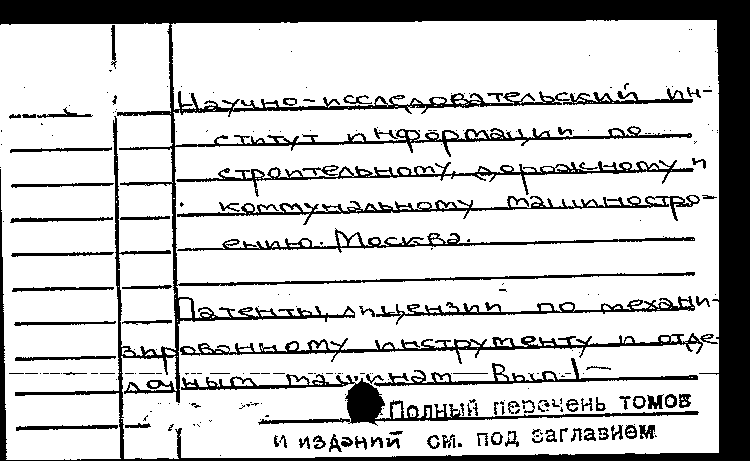 Научно-исследовательский ин-
ститут информации по
строительному, дорожному и
коммунальному машиностро-
ению. Москва.
Патенты, лицензии по механи-
зированному инструменту и отде-
лочным машинам Вып. 1-
Полный перечень томов
и изданий см. под заглавием